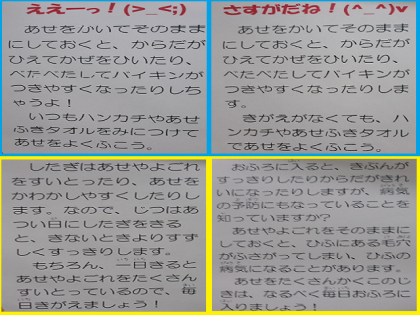 ええーっ！(>_<;)
あせをかいてそのまま
にしておくと、からだが
ひえてかぜをひいたり、
べたべたしてバイキンが
つきやすくなったりしち
ゃうよ！
いつもハンカチやあせ
ふきタオルをみにつけて
あせをよくふこう。
さすがだね！(^_^)v
あせをかいてそのまま
にしておくと、からだが
ひえてかぜをひいたり、
べたべたしてバイキンが
つきやすくなったりしま
す。
きがえがなくても、ハ
ンカチやあせふきタオル
であせをよくふこう。
したぎはあせやよごれ
をすいとったり、あせを
かわかしやすくしたりし
ます。なので、じつはあ
つい日にしたぎをきる
と、きないときよりすず
しくすっきりします。
もちろん、一日きると
あせやよごれをたくさん
すいとっているので、毎
日きがえましょう！
おふろに入ると、きぶんが
すっきりしたりからだがきれ
いになったりしますが、病気
の予防にもなっていることを
知っていますか？
あせやよごれをそのままに
しておくと、ひふにある毛穴
がふさがってしまい、ひふの
病気になることがあります。
あせをたくさんかくこのじ
きは、なるべく毎日おふろに
入りましょう！